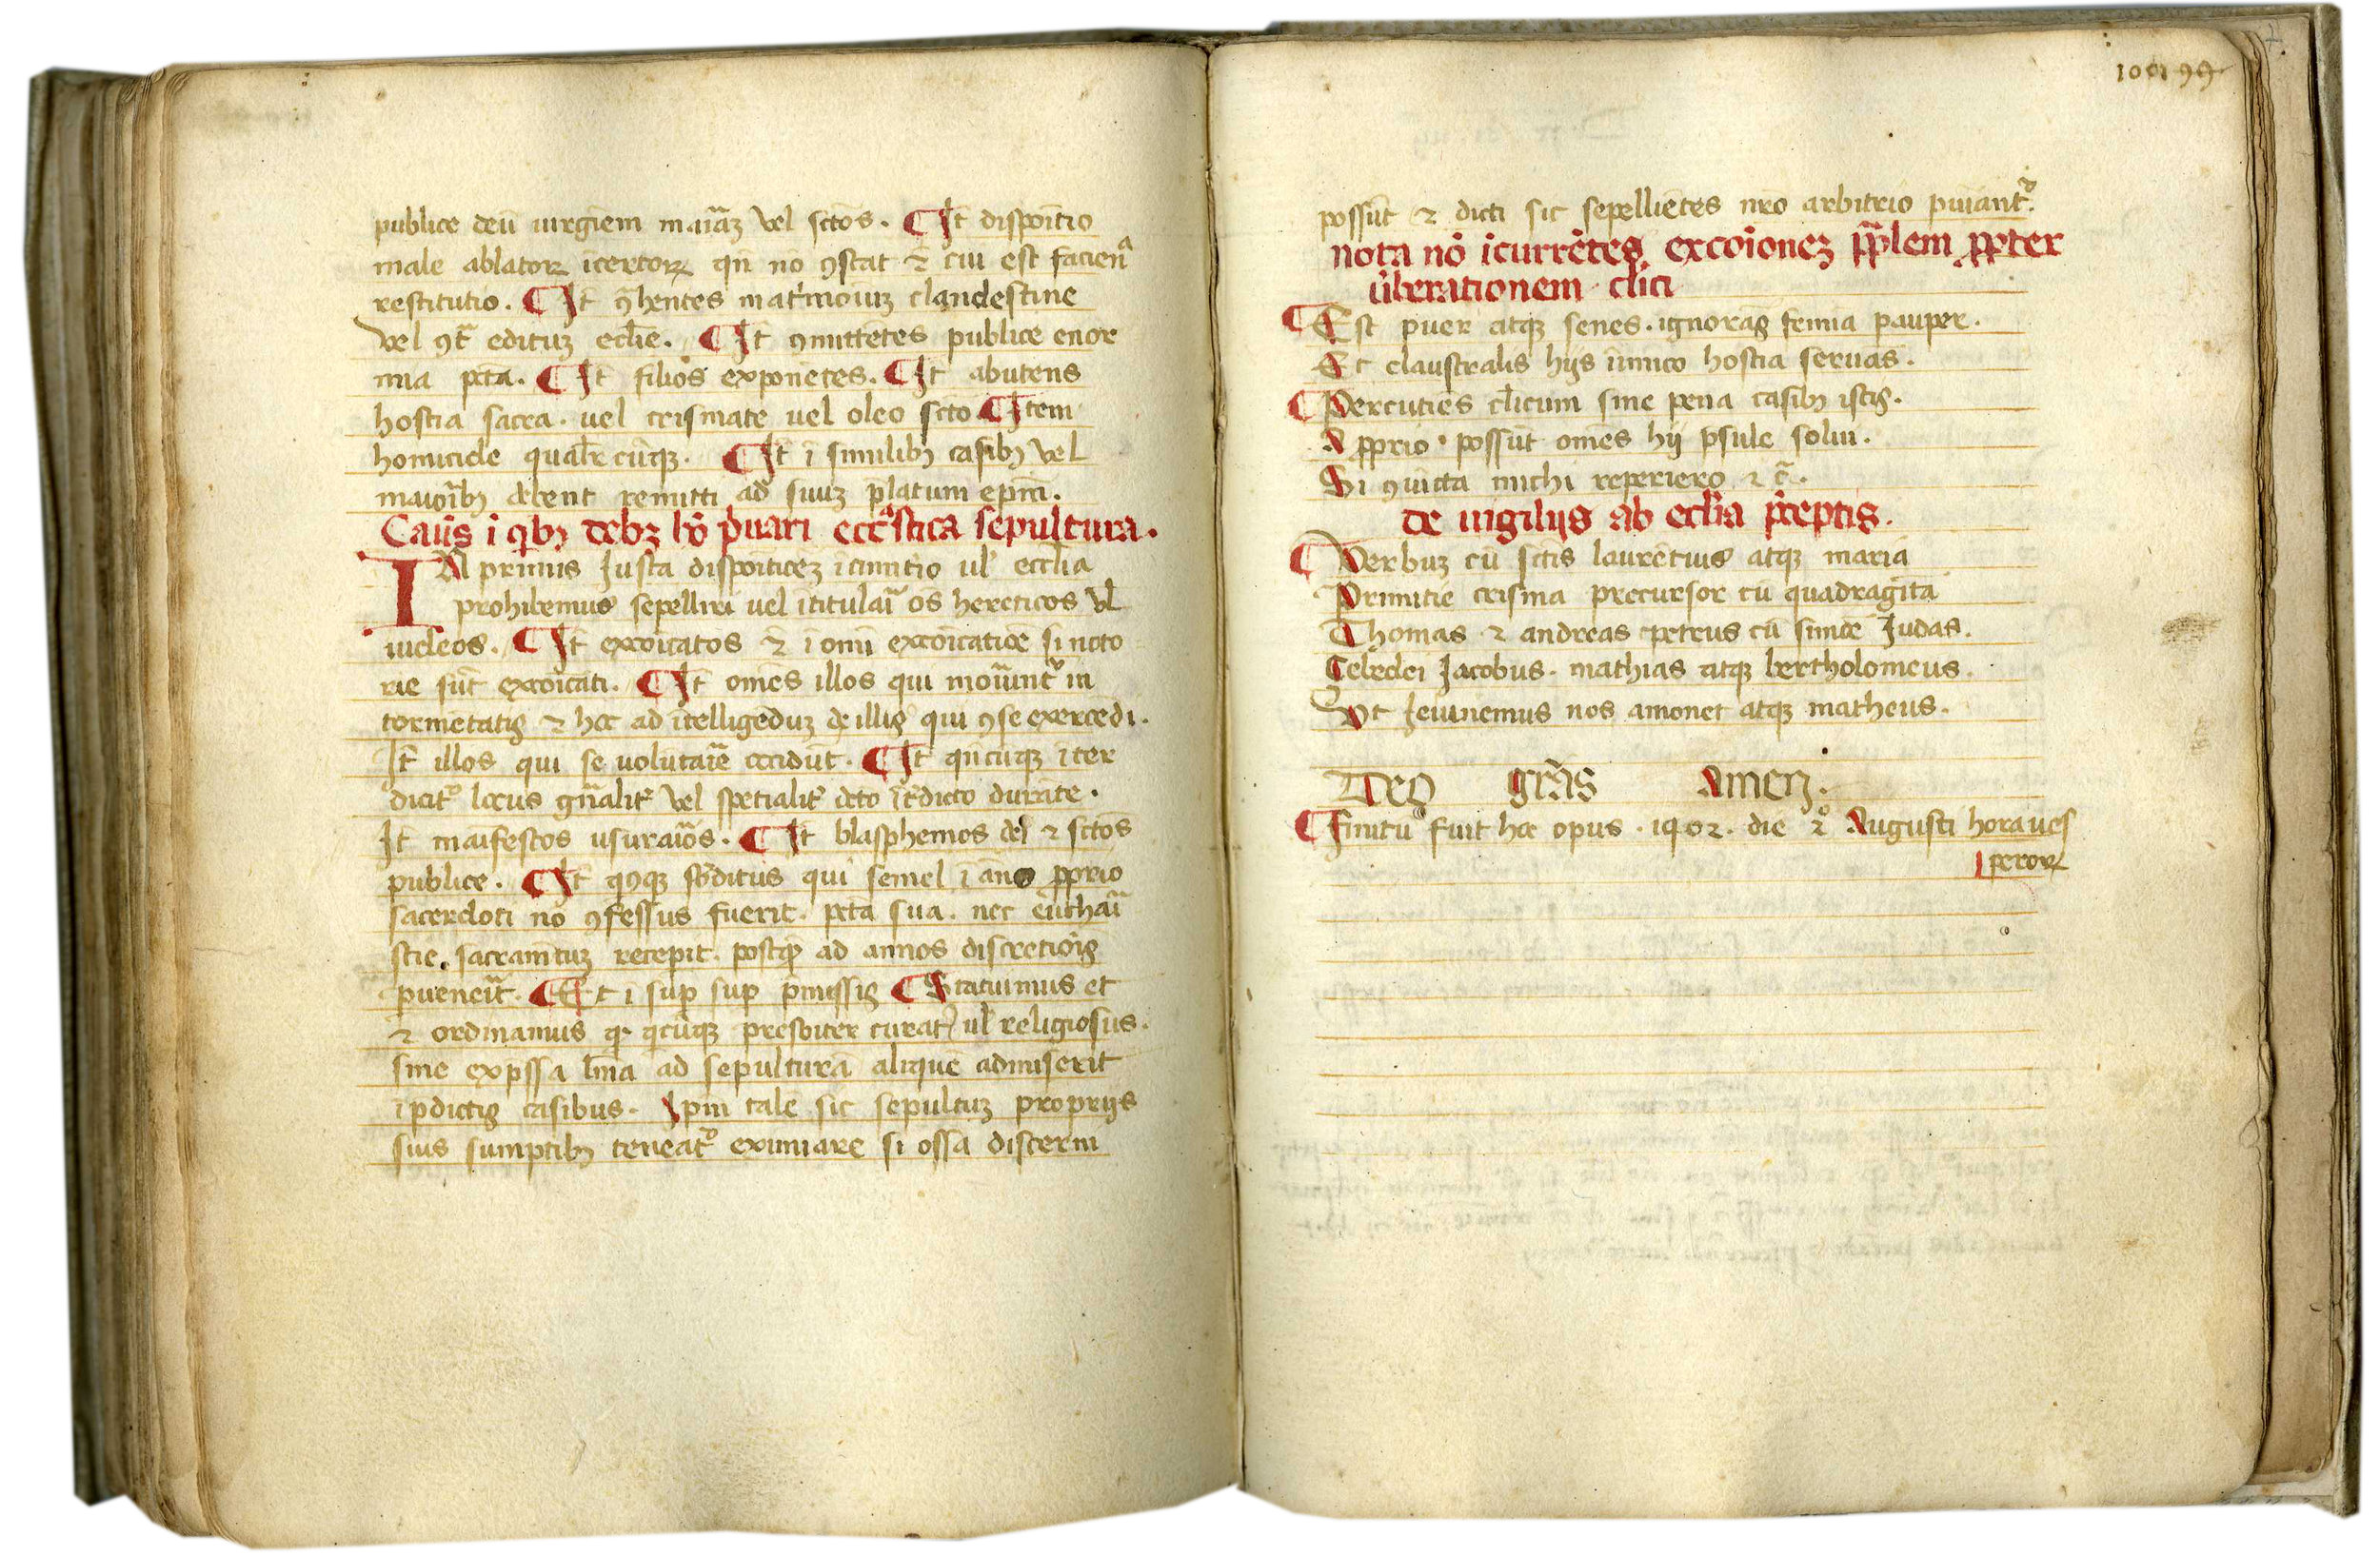 publice deū uirginem mariaʒ vel sctōs. ¶ It̄ dispōitio
male ablatoꝝ īcertoꝝ qn̄ nō ꝯstat ⁊ cui est facien
restitutio. ¶ It̄ ꝯ̄hentes mat'moniuʒ clandestine
vel ꝯt̄ edituʒ ecclie. ¶ It̄ ꝯmittētes publice enor
mia pctā. ¶ It̄ filios exponētes. ¶ It̄ abutens
hostia sacra. uel crismate uel oleo scto ¶ Item
homicide qualr̄cūqꝫ. ¶ It̄ ī similibꝫ casibꝫ vel
maioribꝫ debent remitti ad suuʒ p̄latum ep̄m.
Casus ī qibꝫ debꝫ hō p̄uari ecc̄astica sepultura.
IN primis Justa dispōitionēʒ īcumtio ul' eccl̄ia
prohibemus sepelliri uel ītitulari os hereticos vl
iudeos. ¶ It̄ exc̄oicatos ⁊ ī omī exc̄oicatiōe si noto
rie sūt exc̄oicati. ¶ It̄ omēs illos qui moriunt᷑ in
tormētatis ⁊ hoc ad ītelligēduʒ de illis qui ꝯse exercēdi.
It̄ illos qui se uolūtarie occidūt. ¶ It̄ qn̄cūqꝫ īter
dicit᷑ locus gn̄alit᷑ vel spetialit᷑ dcto īt̄dicto durāte.
It̄ maīfestos usurarios. ¶ It̄ blasphemos dei ⁊ sctos
publice. ¶ It̄ qͥcqꝫ sb̄ditus qui semel ī āno ꝓprio
sacerdoti nō ꝯfessus fuerit. pctā sua. nec euchari
stie. sacramtuʒ recepit. postqꝫ ad annos discretiōis
puenerit. ¶ Et ī sup sup p̄missis ¶ Statuimus et
⁊ ordinamus q. qͥcūqꝫ presbiter curatꝰ ul' religiosus.
sine exp̄ssa lnīa ad sepulturā aliquē admiserit
ī p̄dictis casibus. Ip̄m talē sic sepultuʒ proprijs
suis sumptibꝫ teneat᷑ exumare si ossa discerni
100 1 99
possūt ⁊ dicti sic sepelliētes nr̄o arbitrio puniant᷑.
nota nō īcurrētes excōionēʒ pp̄lem ꝓpter
ūberationem cl̄ici
¶ Est puer atqꝫ senes. ignorās femīa pauper.
Et claustralis hijs iūnico hostia seruās.
¶ Percutiēs clicum sine pena casibꝫ istis.
A ꝓprio possūt omēs hij p̄sule solui.
Si ꝯuicta michi reperiero ⁊ c̄.
de uigilijs ab eccl̄ia p̄ceptis.
¶ Verbuʒ cū sctīs laurētius atqꝫ maria
Primitie crisma precursor cū quadragīta
Thomas ⁊ andreas petrus cū simōe Judas.
Cebedei Jacobus. mathias atqꝫ bertholomeus.
Vt Jeiunemus nos amonet atqꝫ matheus.
Deo grās Amen.
¶ Finitū fuit hoc opus. 1402. die 2° Augusti hora ues
peroꝝ